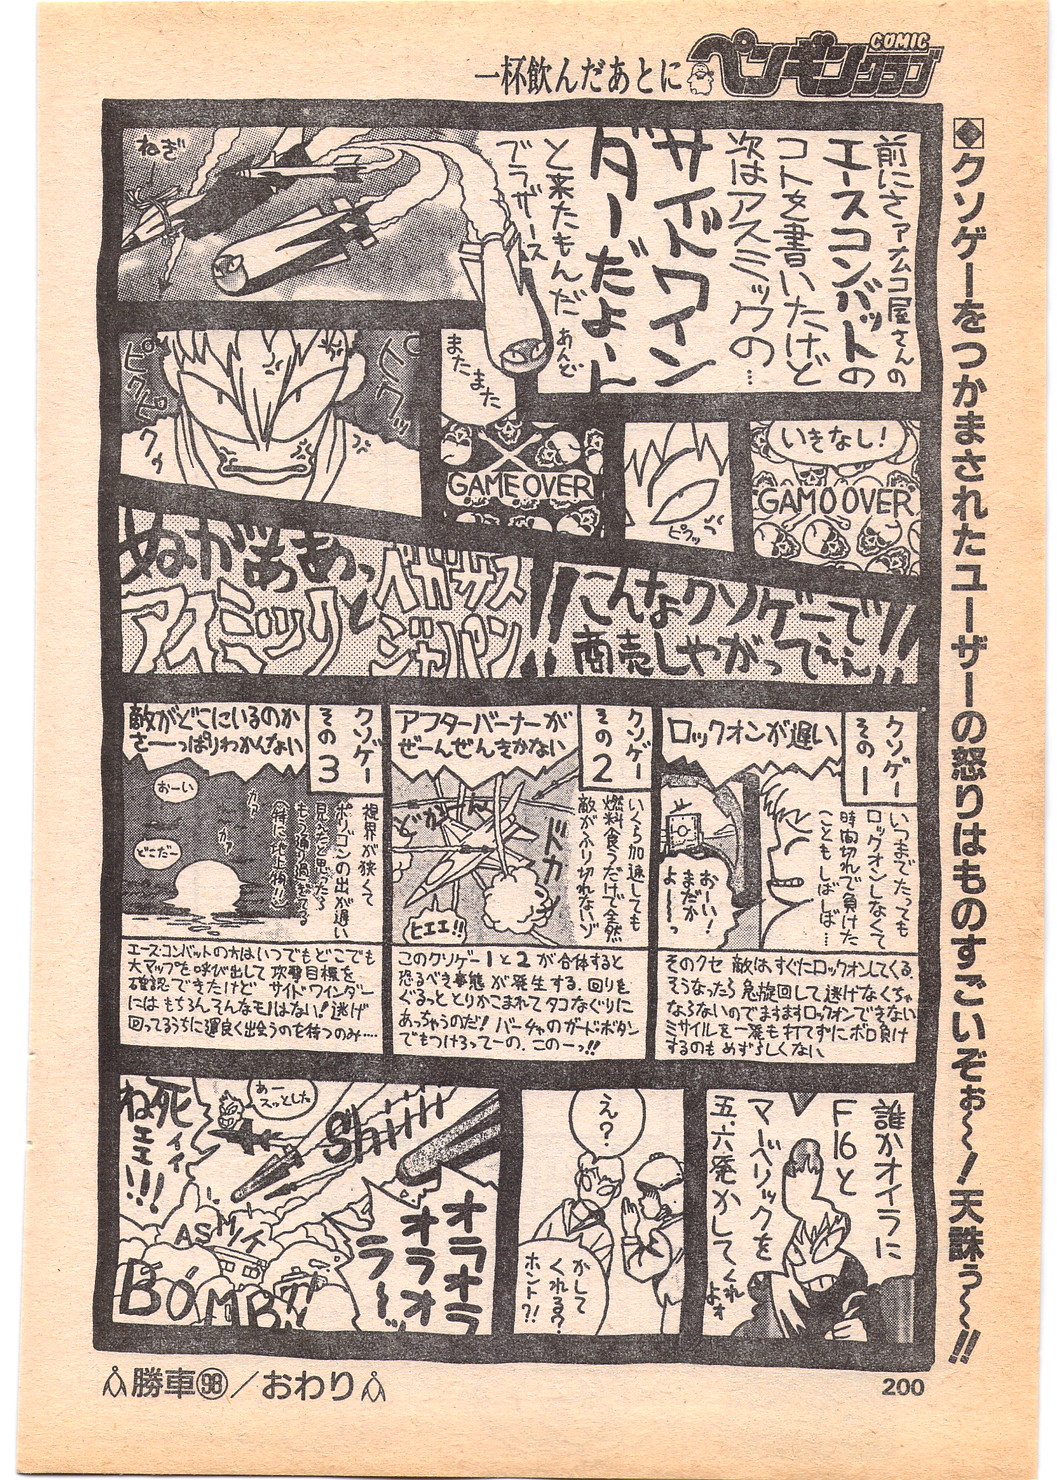 一杯飲んだあとに
COMIC
ペンギンクラブ
クソゲーをつかまされたユーザーの怒りはものすごいぞぉ〜〜!天誅ぅ〜〜!!
前にさァナムコ屋さんの
エースコンバットの
コトを書いたけど
次はアスミックの…
サイドワイン
ダーだよーん
と来たもんだ あんど
ブラザース
ねぎ
またまた
いきなし!
GAMO OVER
ピクッ
GAME OVER
ピクッ
ピクピクゥ
こんなクソゲーで
商売しやがってぇぇ!!
ぬがああぁっ
アスミックと
ペガサス
ジャパン
!!
クソゲー
その一
ロックオンが遅い
いつまでたっても
ロックオンしなくて
時間切れで負けた
こともしばしば…
おーい!
まだかっ
よーっ
そのクセ 敵はすぐにロックオンしてくる。
そうなったら 急旋回して逃げなくちゃ
ならないのでますますロックオンできない
ミサイルを一発も打てずにボロ負け
するのも めずらしくない
クソゲー
その2
アフターバーナーが
ぜーんぜんきかない
いくら加速しても
燃料食うだけで全然
敵がふり切れないゾ
ドカ
どかん
ヒエエ!!
このクソゲー1と2が合体すると
恐るべき事態が発生する。回りを
ぐるっととりかこまれてタコなぐりに
あっちゃうのだ! バーチャのガードボタン
でもつけろってーの。このーっ!!
クソゲー
その3
敵がどこにいるのか
さーっぱりわかんない
視界が狭くて
ポリゴンの出が遅い
見えたと思ったら
もう通り過ぎてる
(特に地上物!!)
おーい
どこだー
カァ
カァ
エース・コンバットの方はいつでもどこでも
大マップを呼び出して 攻撃目標を
確認できたけど サイドワインダー
にはもちろん そんなモノはない! 逃げ
回ってるうちに運良く出会うのを待つのみ…
誰かオイラに
F16と
マーベリックを
五、六発かして くれよォ
え?
かして
くれる?
ホント?!
あー
スッとした
Shiiii
死ィィ
ねェェ!!!
オラオラ
オラオラオ
ラ〜〜
ASMIK
BOMB!!
勝車98/おわり
200